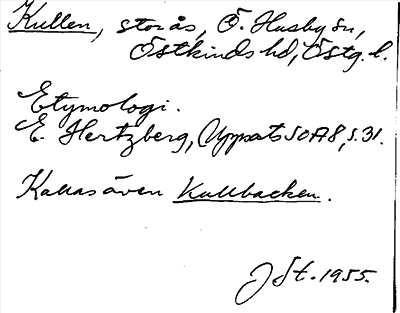 Kullen, stor ås, Ö. Husby sn,
Östkinds hd, Östg. l.
Etymologi.
E. Hertzberg, Uppsats SOA 8, s. 31.
Kallas även Kullbacken.
J St. 1955.